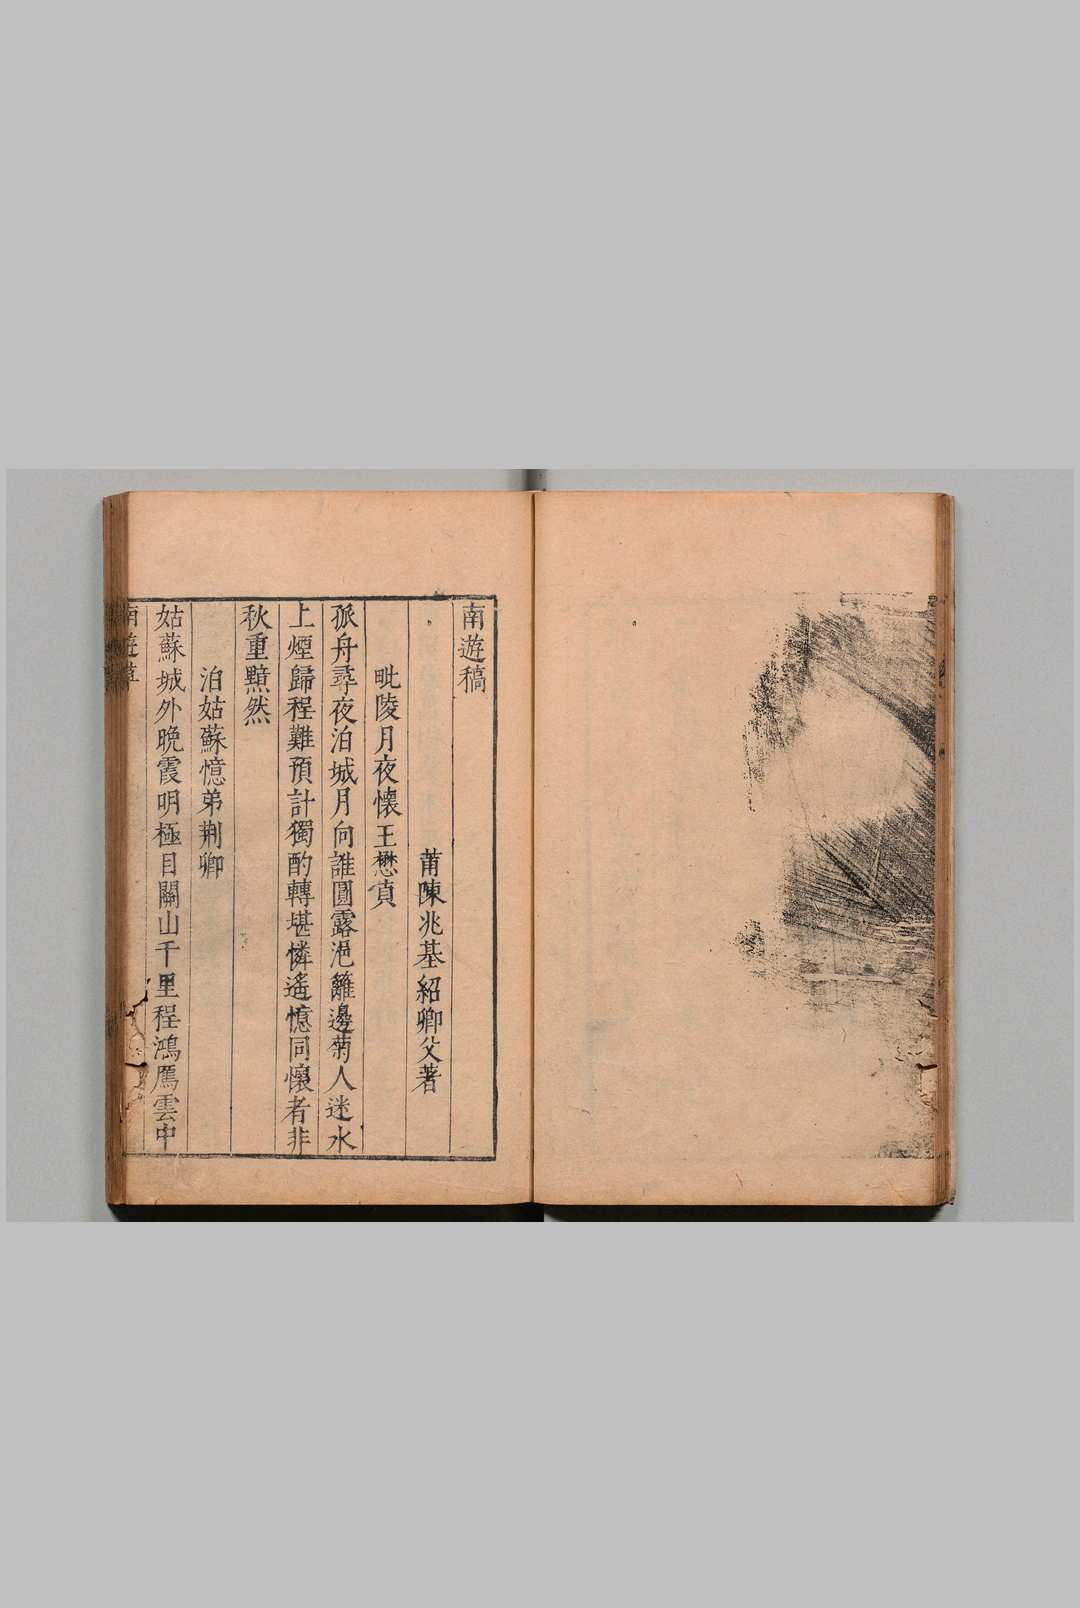 南遊稿
莆陳兆基紹卿父著
毗陵月夜懷王懋貞
孤舟尋夜泊城月向誰圓露浥籬邊菊人迷水
上煙歸程難預計獨酌轉堪憐遙憶同懷者非
秋重黯然
泊姑蘇憶弟荆卿
姑蘇城外晚霞明極目關山千里程鴻鴈雲中
南遊草